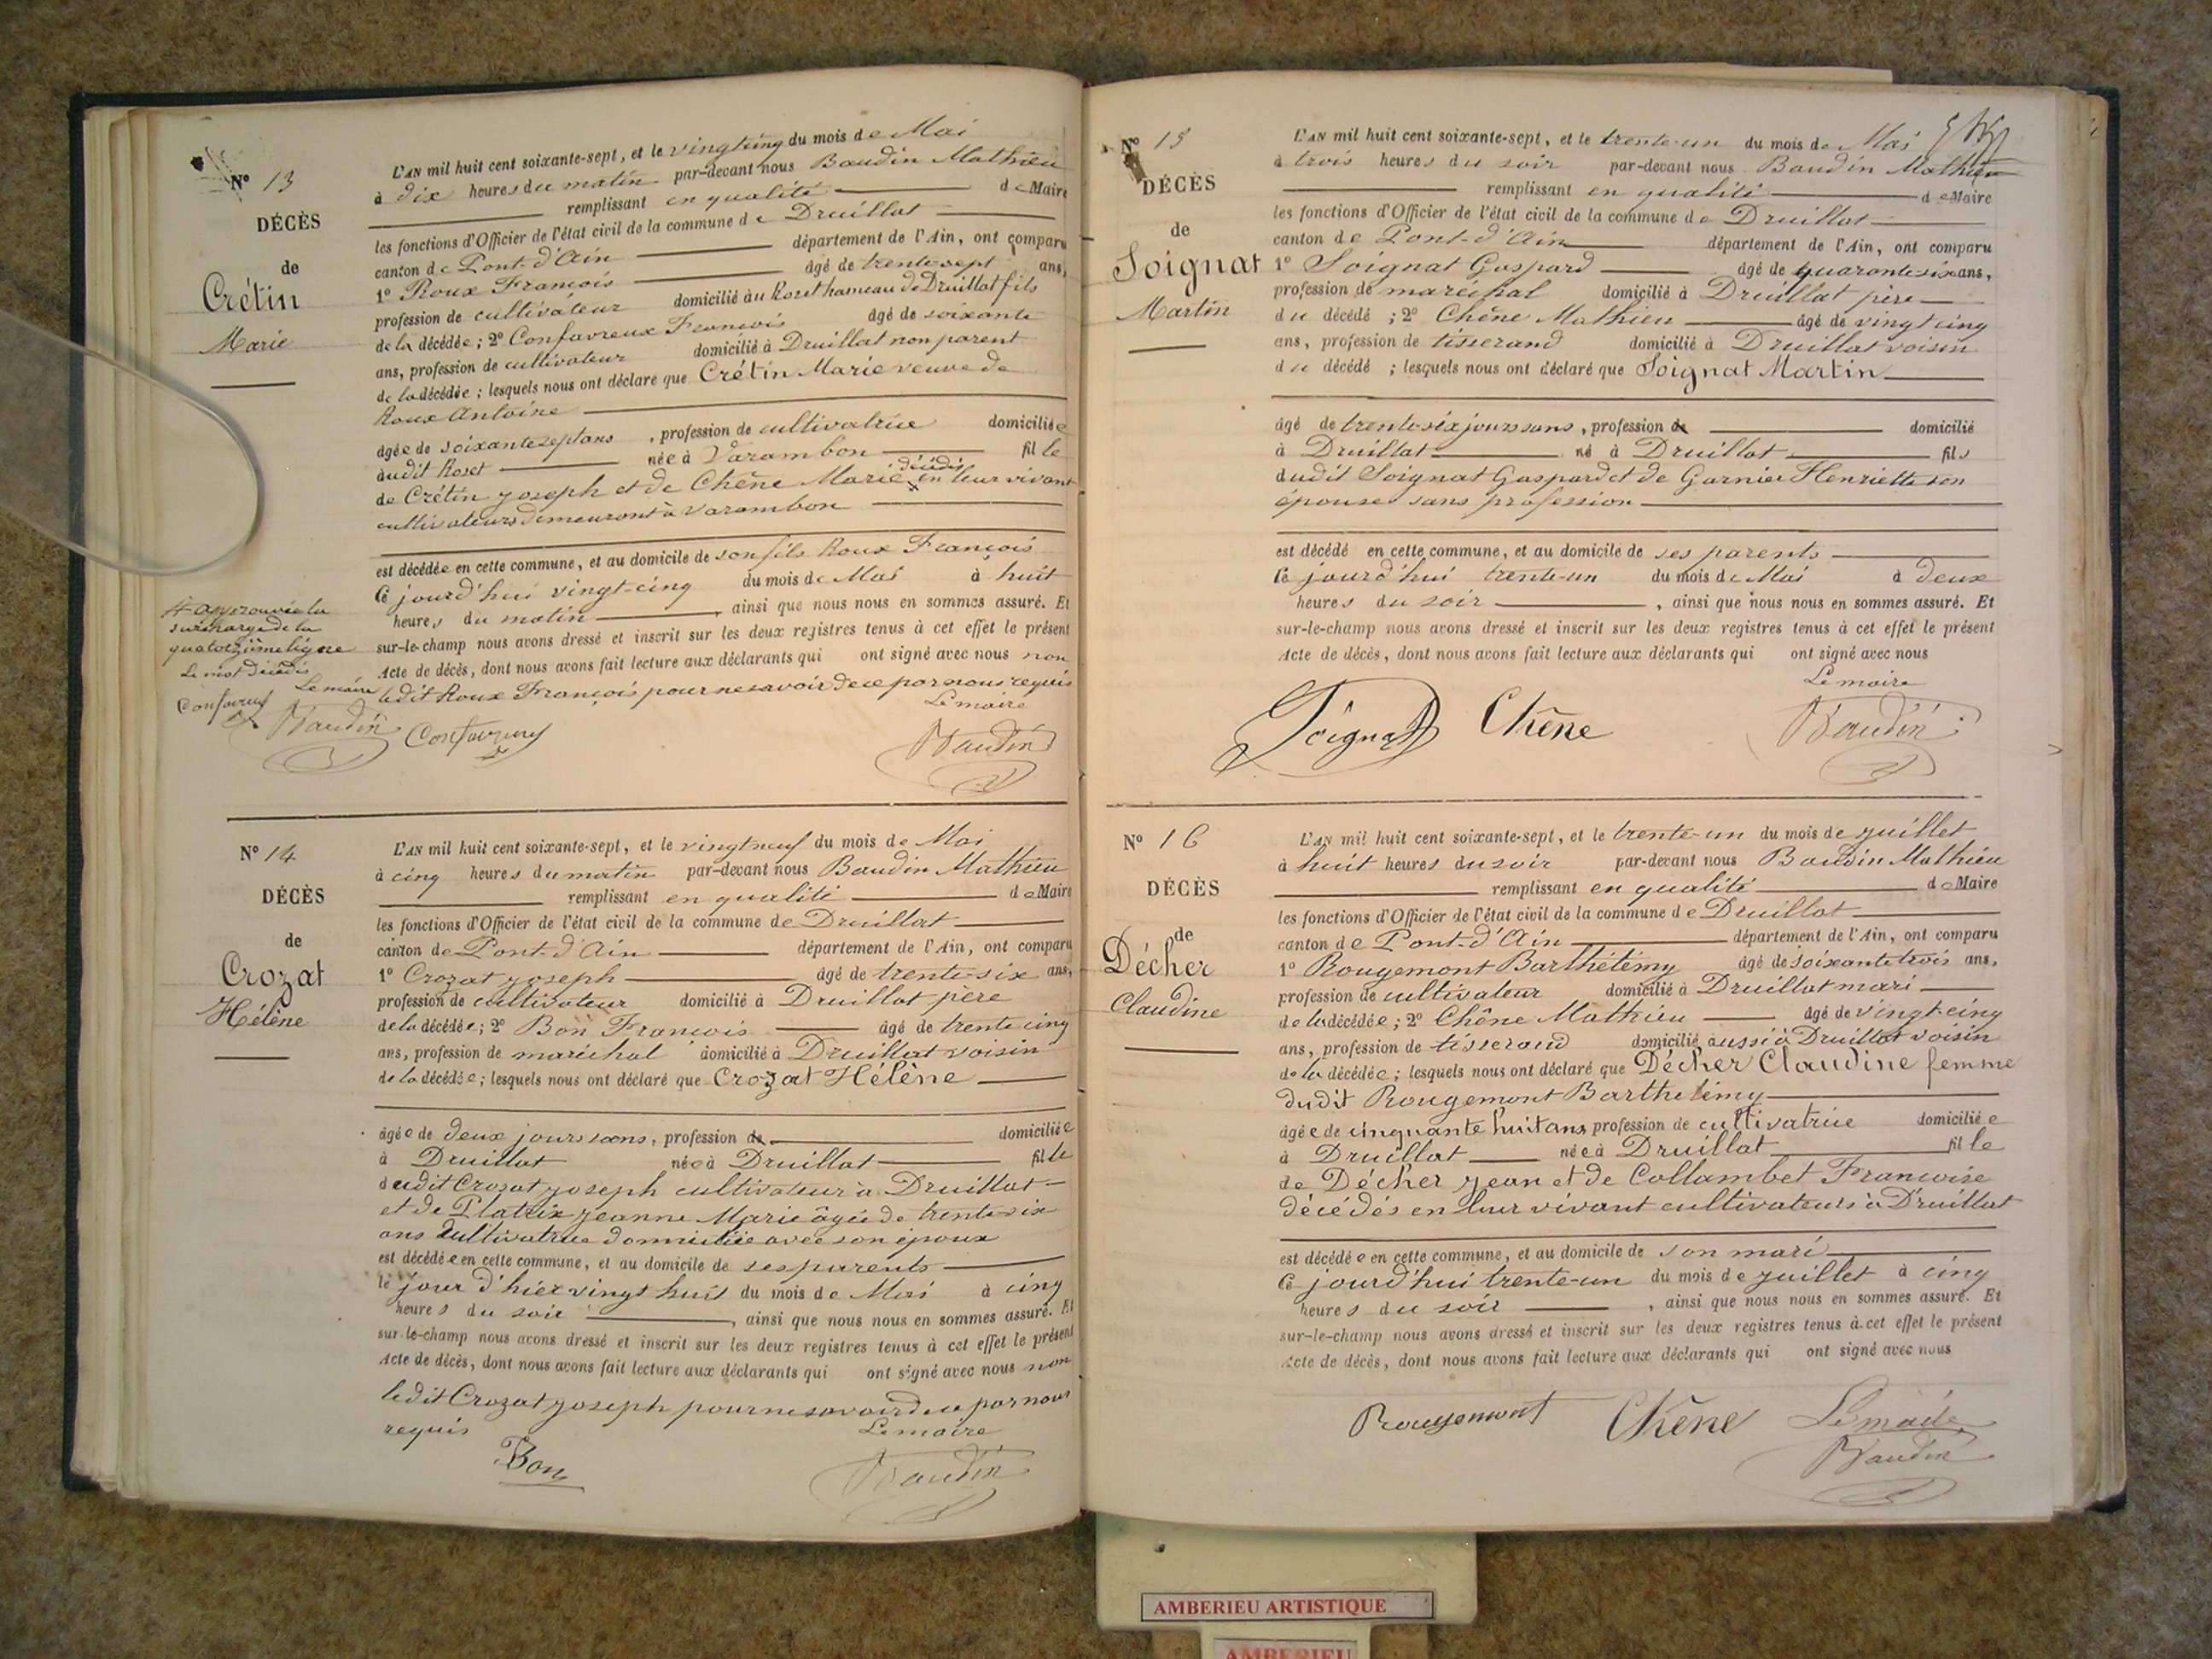 N° 13
DÉCÈS
de
Crétin
Marie
L'AN mil huit cent soixante-sept, et le vingt cinq du mois de Mai
à dix heures du matin par-devant nous Baudin Mathieu
remplissant en qualité de Maire
les fonctions d'Officier de l'état civil de la commune de Druillat
canton de Pont-d'Ain département de l'Ain, ont comparu
1° Roux François âgé de trente-sept ans,
profession de cultivateur domicilié au Roset hameau de Druillat fils
de la décédée; 2° Confavreux François âgé de soixante
ans, profession de cultivateur domicilié à Druillat non parent
de la décédée; lesquels nous ont déclaré que Crétin Marie veuve de
Roux Antoine
âgée de soixante sept ans, profession de cultivatrice domiciliée
audit Roset née à Varambon fille
de Crétin Joseph et de Chêne Marie décédés en leur vivant
cultivateurs demeurant à Varambon
est décédée en cette commune, et au domicile de son fils Roux François
Ce jourd'hui vingt-cinq du mois de Mai à huit
heures du matin, ainsi que nous nous en sommes assuré. Et
sur-le-champ nous avons dressé et inscrit sur les deux registres tenus à cet effet le présent
Acte de décès, dont nous avons fait lecture aux déclarants qui ont signé avec nous non
ledit Roux François pour ne savoir de ce par nous requis
Le maire
approuvée la
surcharge de la
quatorzième ligne
Le mot décédés
Le maire
Baudin
Baudin
N° 14
DÉCÈS
de
Crozat
Hélène
L'AN mil huit cent soixante-sept, et le vingt neuf du mois de Mai
à cinq heures du matin par-devant nous Baudin Mathieu
remplissant en qualité de Maire
les fonctions d'Officier de l'état civil de la commune de Druillat
canton de Pont-d'Ain département de l'Ain, ont comparu
1° Crozat Joseph âgé de trente-six ans,
profession de cultivateur domicilié à Druillat père
de la décédée; 2° Bon François âgé de trente cinq
ans, profession de maréchal domicilié à Druillat voisin
de la décédée; lesquels nous ont déclaré que Crozat Hélène
âgée de deux jours sans, profession de domiciliée
à Druillat née à Druillat fille
dudit Crozat Joseph cultivateur à Druillat
et de Platrix Jeanne Marie âgée de trente six
ans cultivatrice domiciliée avec son époux
est décédée en cette commune, et au domicile de ses parents
le jour d'hier vingt huit du mois de Mai à cinq
heures du soir, ainsi que nous nous en sommes assuré. Et
sur-le-champ nous avons dressé et inscrit sur les deux registres tenus à cet effet le présent
Acte de décès, dont nous avons fait lecture aux déclarants qui ont signé avec nous non
ledit Crozat Joseph pour ne savoir de ce par nous
requis Le maire
Bon Baudin
N° 15
DÉCÈS
de
Soignat
Martin
L'AN mil huit cent soixante-sept, et le trente-un du mois de Mai
à trois heures du soir par-devant nous Baudin Mathieu
remplissant en qualité de Maire
les fonctions d'Officier de l'état civil de la commune de Druillat
canton de Pont-d'Ain département de l'Ain, ont comparu
1° Soignat Gaspard âgé de quarante six ans,
profession de maréchal domicilié à Druillat père
du décédé; 2° Chêne Mathieu âgé de vingt cinq
ans, profession de tisserand domicilié à Druillat voisin
du décédé; lesquels nous ont déclaré que Soignat Martin
âgé de trente-six jours sans, profession de domicilié
à Druillat né à Druillat fils
dudit Soignat Gaspard et de Garnier Henriette son
épouse sans profession
est décédé en cette commune, et au domicile de ses parents
Ce jourd'hui trente-un du mois de Mai à deux
heures du soir, ainsi que nous nous en sommes assuré. Et
sur-le-champ nous avons dressé et inscrit sur les deux registres tenus à cet effet le présent
Acte de décès, dont nous avons fait lecture aux déclarants qui ont signé avec nous
Le maire
Soignat Chêne Baudin
N° 16
DÉCÈS
de
Décher
Claudine
L'AN mil huit cent soixante-sept, et le trente-un du mois de Juillet
à huit heures du soir par-devant nous Baudin Mathieu
remplissant en qualité de Maire
les fonctions d'Officier de l'état civil de la commune de Druillat
canton de Pont-d'Ain département de l'Ain, ont comparu
1° Rougemont Barthélémy âgé de soixante trois ans,
profession de cultivateur domicilié à Druillat mari
de la décédée; 2° Chêne Mathieu âgé de vingt-cinq
ans, profession de tisserand domicilié aussi à Druillat voisin
de la décédée; lesquels nous ont déclaré que Décher Claudine femme
dudit Rougemont Barthelémy
âgée de cinquante huit ans profession de cultivatrice domiciliée
à Druillat née à Druillat fille
de Décher Jean et de Collambet Francoise
décédés en leur vivant cultivateurs à Druillat
est décédée en cette commune, et au domicile de son mari
Ce jourd'hui trente-un du mois de Juillet à cinq
heures du soir, ainsi que nous nous en sommes assuré. Et
sur-le-champ nous avons dressé et inscrit sur les deux registres tenus à cet effet le présent
Acte de décès, dont nous avons fait lecture aux déclarants qui ont signé avec nous
Rougemont Chêne Le maire
Baudin
AMBERIEU ARTISTIQUE
AMBERIEU